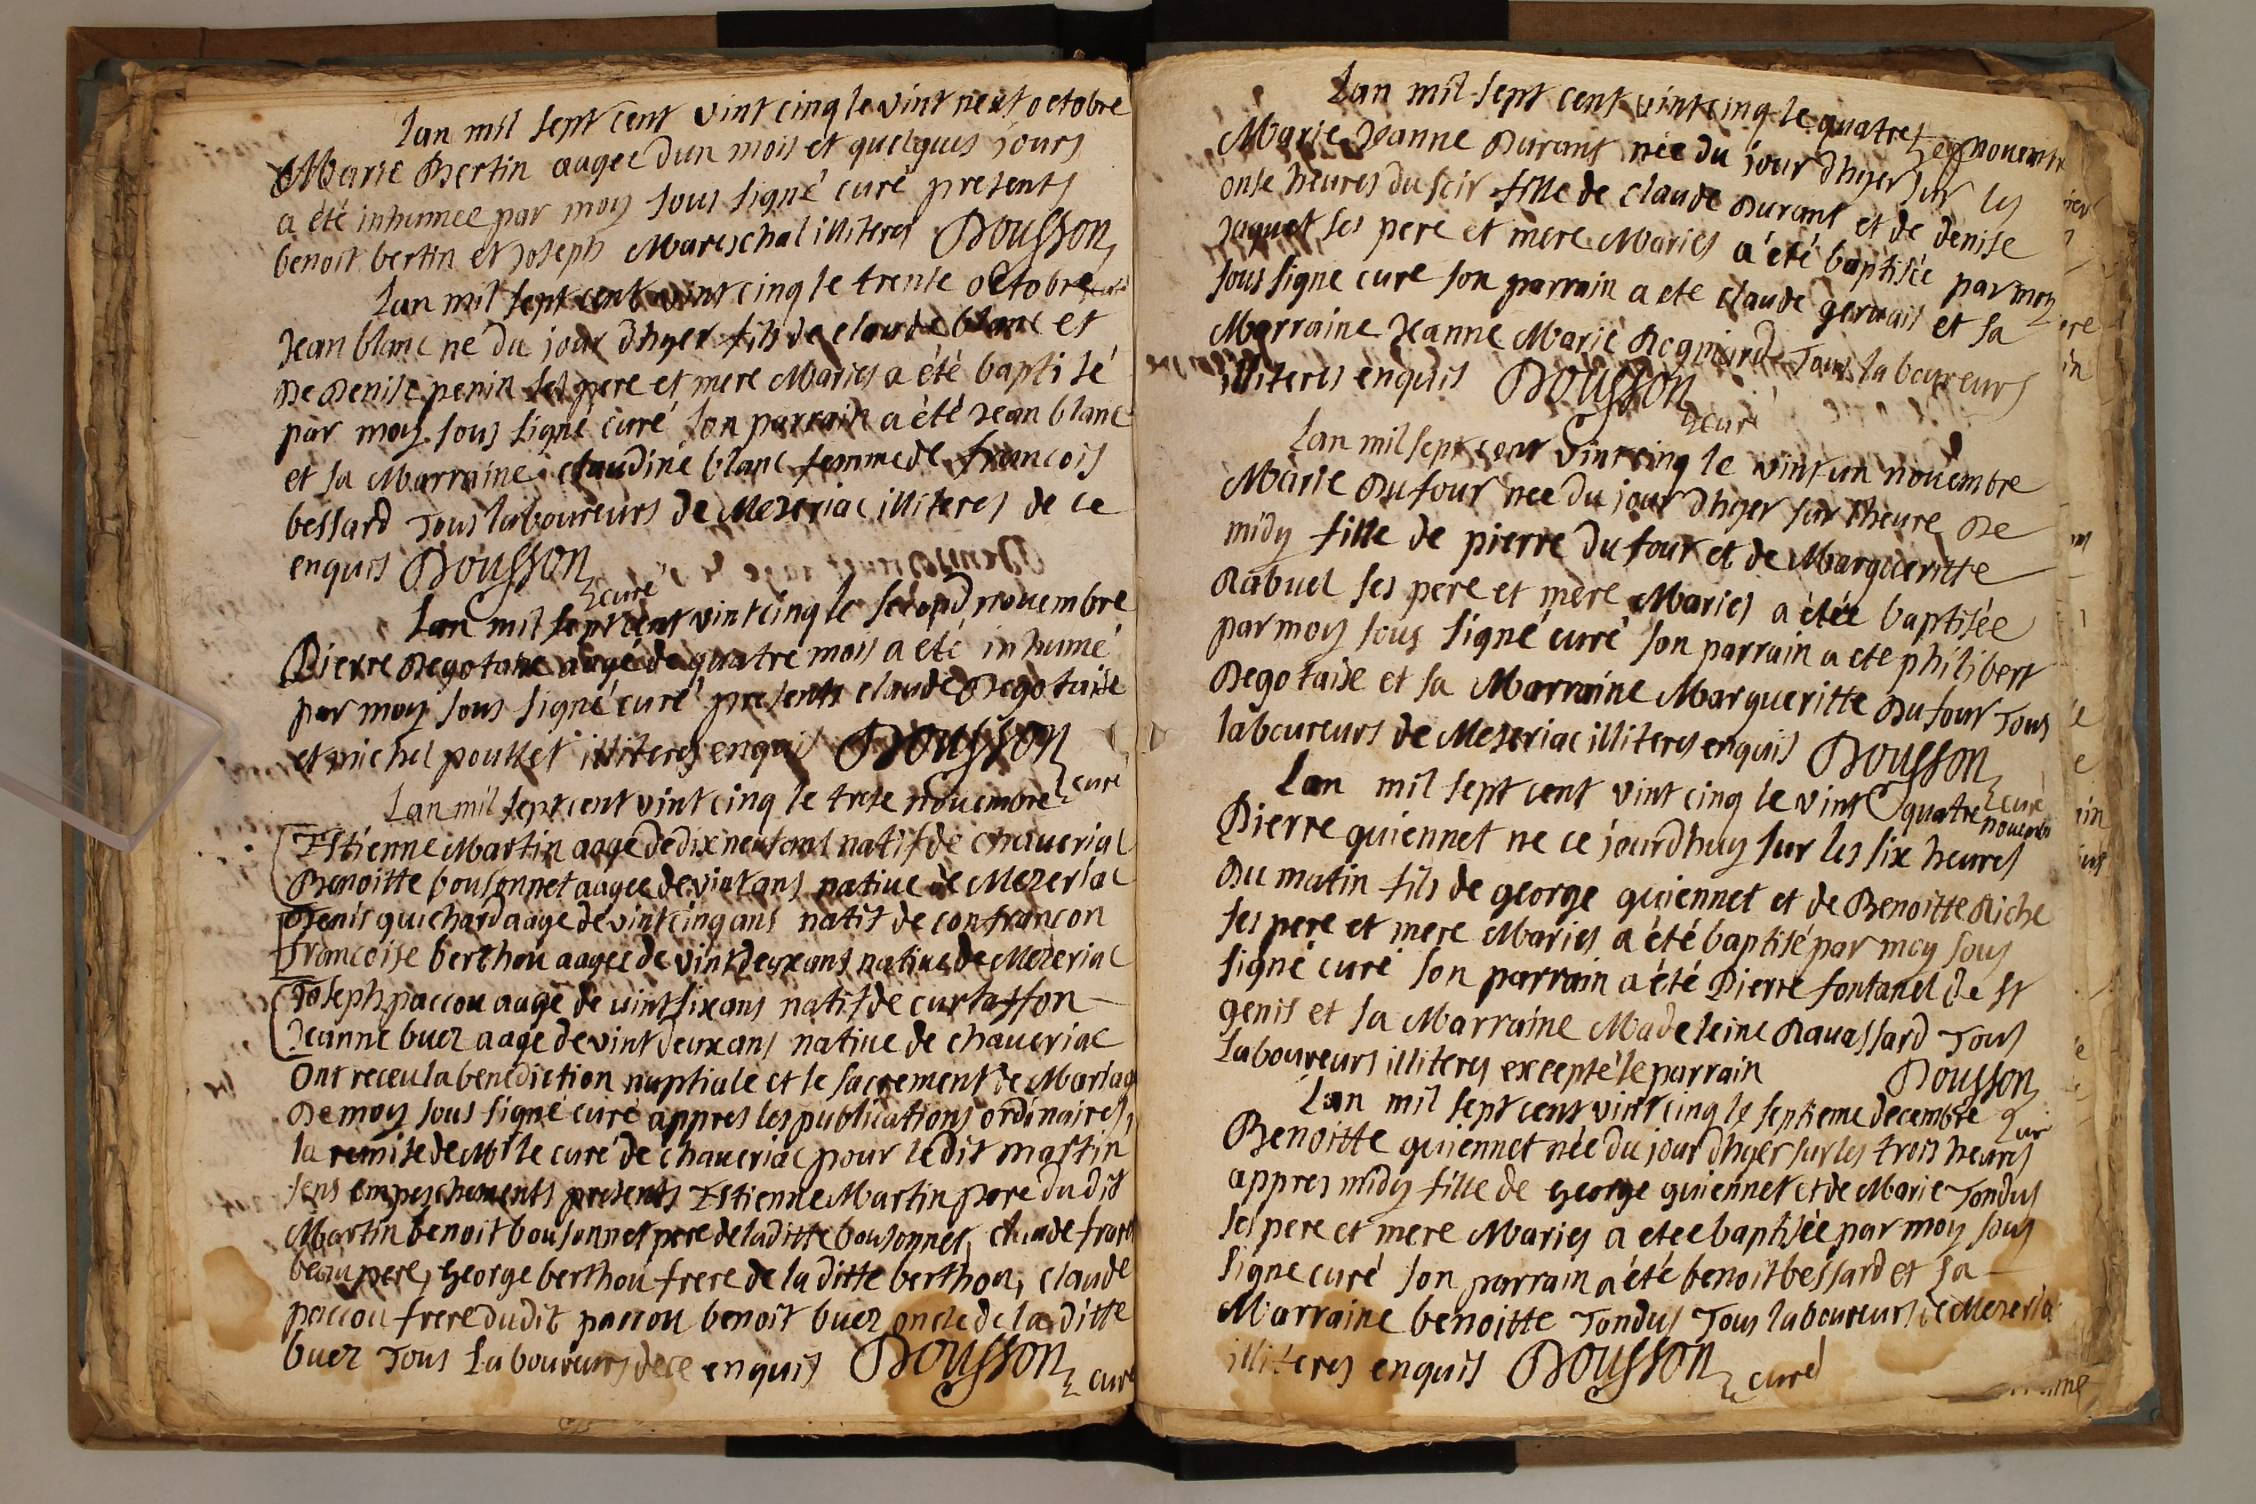 Lan mil sept cent vint cinq le vint neuf octobre
Marie Bertin aagee dun mois et quelques jours
a été inhumee par moy sous signé curé presents
benoit bertin et Joseph Mareschal illiteres Dousson
Lan mil sept cent vint cinq le trente octobre
Jean blanc né du jour dhyer fils de claude blanc et
De Denise penin ses pere et mere Maries a été baptisé
par moy sous signé curé son parrain a été Jean blanc
et sa Marraine claudine blanc femme de francois
bessard Tous laboureurs de Mezeriac illiteres de ce
enquis Dousson
curé
Lan mil sept cent vint cinq le second nouembre
Pierre Degotaise aagé de quatre mois a été inhumé
par moy sous signé curé presents claude Degotaise
et michel poullet illiteres enquis Dousson
curé
Lan mil sept cent vint cinq le trese nouembre
Estienne Martin aage de dix neuf ans natif de chaueriac
Benoitte bousonnet aagee de vint ans natiue de Mezeriac
Denis guichard aage de vint cinq ans natif de confrancon
francoise berthou aagee de vint deux ans natiue de Mezeriac
Joseph paccou aage de vint six ans natif de curtaffon
Jeanne buez aage de vint deux ans natiue de chaueriac
Ont receu la benediction nuptiale et le sacrement de Mariag
De moy sous signé curé appres les publications ordinaires,
la remise de Mr le curé de chaueriac pour le dit martin
sens empeschements presents Estienne Martin pere du dit
Martin benoit bousonnet pere de la ditte bousonnet, claude
beau pere, George berthou frere de la ditte berthou, claude
paccou frere du dit paccou benoit buez oncle de la ditte
buez Tous Laboureurs de ce enquis Dousson curé
Lan mil sept cent vint cinq le quatre nouembre
Marie Jeanne Durant née du jour dhyer sur les
onse heures du soir fille de claude Durant et de denise
Juquet ses pere et mere Maries a été baptisée par moy
sous signe cure son parrain a ete claude geruais et sa
Marraine Jeanne Marie Tous laboureurs
illiteres enquis Dousson
curé
Lan mil sept cent vint cinq le vint un nouembre
Marie Dufour nee du jour dhyer sur lheure De
midy fille de pierre du four et de Margueritte
Rabuel ses pere et mere Maries a étée baptisée
par moy sous signé curé son parrain a ete philibert
Degotaise et sa Marraine Margueritte Dufour Tous
laboureurs de Mezeriac illiteres enquis Dousson
curé
Lan mil sept cent vint cinq le vint quatre nouembre
Pierre guiennet ne ce jourdhuy sur les six heures
Du matin fils de george guiennet et de Benoitte Riche
ses pere et mere Maries a été baptisé par moy sous
signé curé son parrain a été Pierre fontanel de st
genis et sa Marraine Madeleine Rauassard Tous
Laboureurs illiteres excepté le parrain Dousson
Lan mil sept cent vint cinq le septieme decembre
Benoitte guiennet née du jour dhyer sur les trois heures
appres midy fille de George guiennet et de Marie Tondus
ses pere et mere Maries a etee baptisée par moy sous
signe curé son parrain a été benoit bessard et sa
Marraine benoitte Tondus Tous laboureurs de Mezeria
illiteres enquis Dousson curé